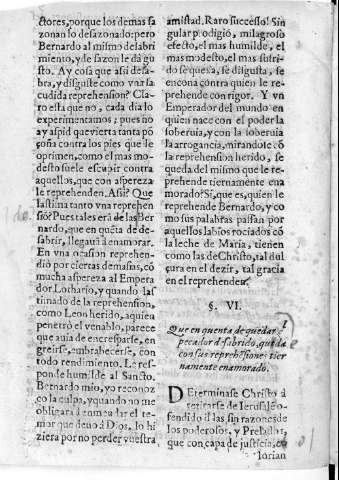 ctores, porque los demas sa
zonan lo desazonado: pero
Bernardo al mismo desabri
miento, y desazon le dà gu-
sto. Ay cosa que assi desa-
bra, y disguste como vna sa
cudida reprehension? Cla
ro està que no, cada dia lo
experimentamos; pues no
ay aspid que vierta tanta pō
çoña contra los pies que le
oprimen, como el mas mo-
desto suele escupir contra
aquellos, que con aspereza
le reprehenden. Assi? Que
lastima tanto vna reprehen
siō? Pues tales erā de las Ber
nardo, que en quēta de de-
sabrir, llegauā à enamorar.
En vna ocasion reprehen-
diò por ciertas demasias, cō
mucha aspereza al Empera
dor Lothario, y quando las
timado de la reprehension,
como Leon herido, aquien
penetrò el venablo, parece
que auia de encresparse, en
greirse, embrabecerse, con
todo rendimiento. Le res-
ponde humilde al Sancto.
Bernardo mio, yo reconoz
co la culpa, y quando no me
obligara à enmendar el te-
mor que deuo à Dios, lo hi
ziera por no perder vuestra
amistad. Raro successo! Sin
gular prodigiò, milagroso
efecto, el mas humilde, el
mas modesto, el mas sufri-
do se quexa, se disgusta, se
encona contra quien le re-
prehende con rigor. Y vn
Emperador del mundo en
quien nace con el poder la
soberuia, y con la soberuia
la arrogancia, mirandose cō
la reprehension herido, se
queda del mismo que le re-
prehende tiernamente ena
morado? Si, que es, quien le
reprehende Bernardo, y co
mo sus palabras passan por
aquellos labios rociados cō
la leche de Maria, tienen
como las de Christo, tal dul
çura en el dezir, tal gracia
en el reprehender.
§. VI.
Que en quenta de quedar
pecador desabrido, queda
con sus reprehēsiones tier
namente enamorado.
DEterminase Christo à
retirarse de Ierusalē o-
fendido dlas sin razones de
los poderosos, y Prelados,
que con capa de justicia, ex